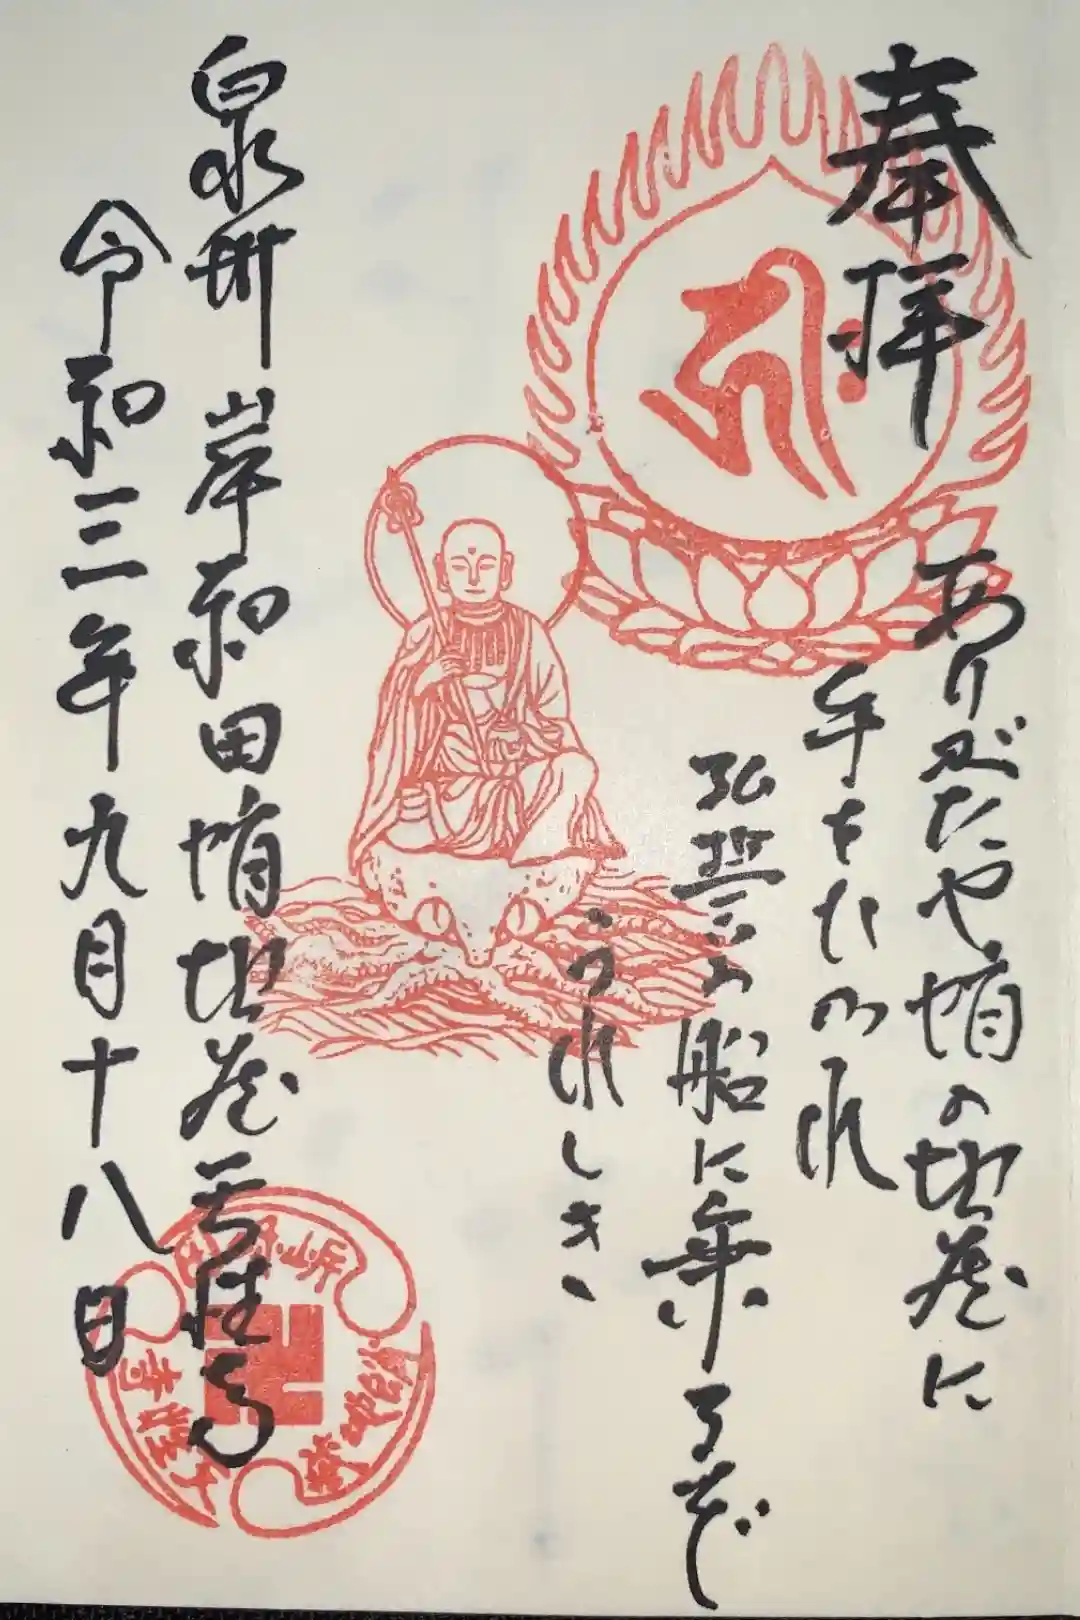 奉拝
ありがたや蛸の地蔵に
手をひかれ
弘誓の船に乗るぞ
うれしき
泉州 岸和田蛸地蔵天性寺
令和三年九月十八日
蛸地蔵
天性寺